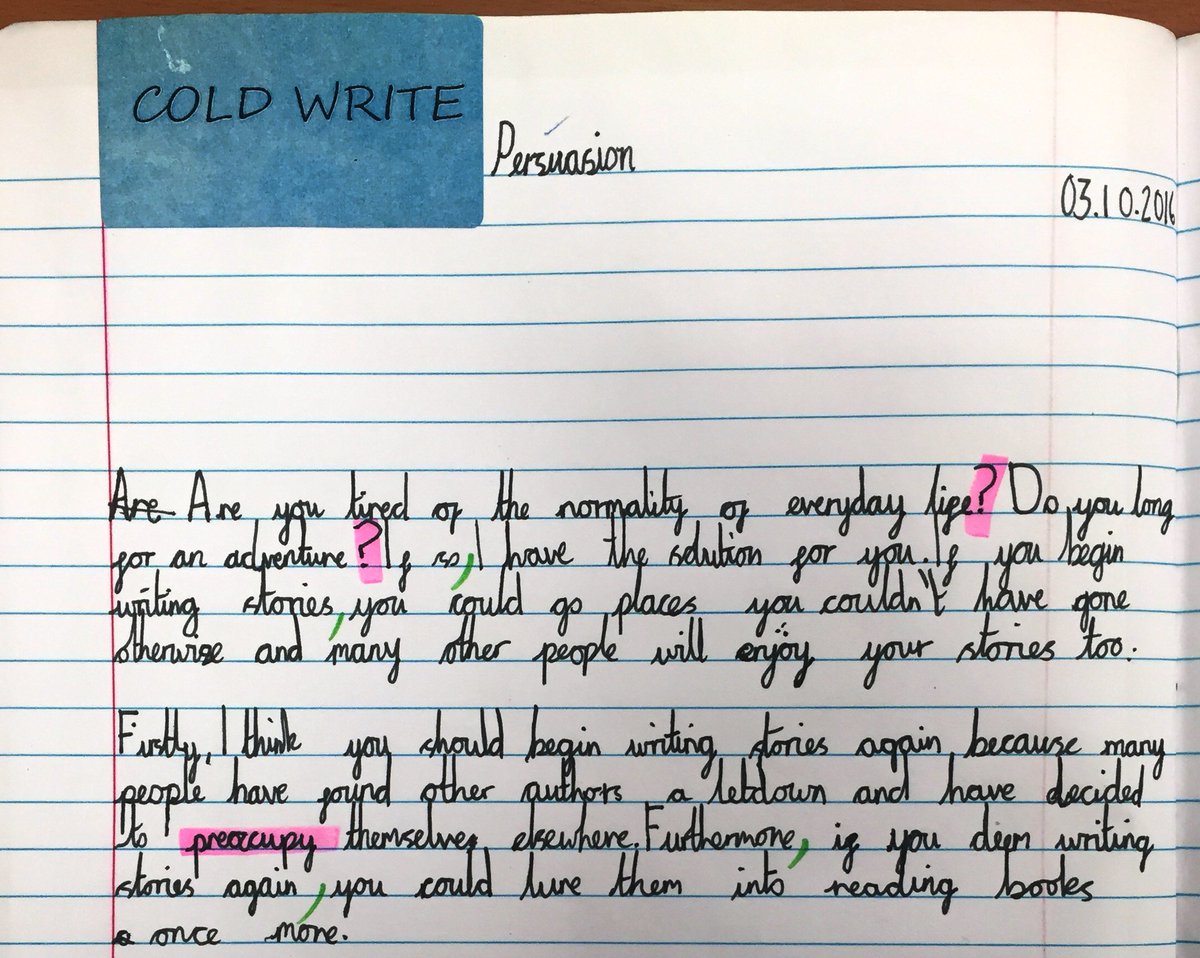 COLD WRITE
Persuasion
03.10.2016
Are Are you tired of the normality of everyday life? Do you long
for an adventure? If so, I have the solution for you. If you begin
writing stories, you could go places you couldn't have gone
otherwise and many other people will enjoy your stories too.
Firstly, I think you should begin writing stories again, because many
people have found other authors a letdown and have decided
to preoccupy themselves elsewhere. Furthermore, if you deem writing
stories again, you could lure them into reading books
a once more.